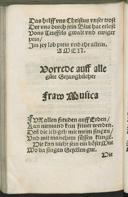 Das helff uns Christus unser trost
Der uns durch sein Blut hat erlost
Vons Teuffels gwalt und ewiger
pein,
Im sey lob preis und ehr allein,
AMEN.
Vorrede auff alle
gute Gesangbücher
Fraw Musica
Fur allen freuden auff Erden,
Kan niemand kein feiner werden,
Denn die ich geb mit meim singen,
Und mit manchem süssen klingen.
Hie kan nicht sein ein böser Mut
Wo da singen Gesellen gut,
Hie